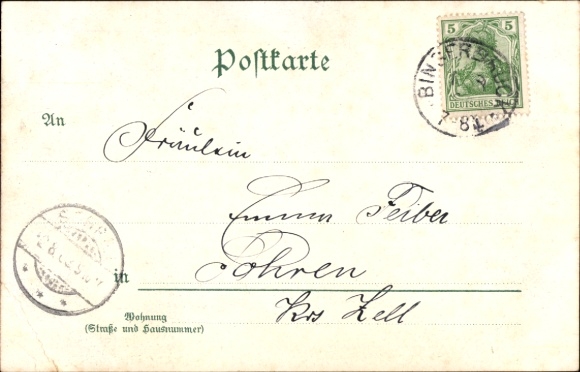 5 5
DEUTSCHES REICH
BINGERBRÜCK
7-8N
Postkarte
An
Fräulein
Emma Feiber
in Sohren
Krs Zell
Wohnung
(Straße und Hausnummer)